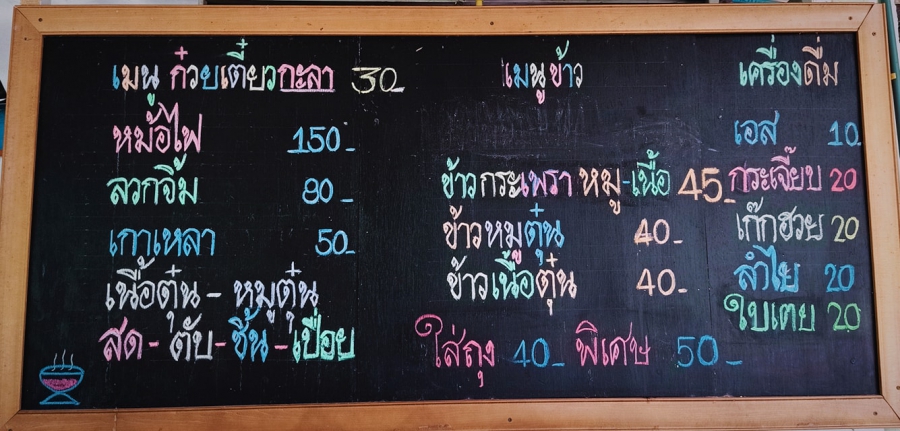 เมนู ก๋วยเตี๋ยวกะลา 30-
หม้อไฟ 150-
ลวกจิ้ม 80-
เกาเหลา 50-
เนื้อตุ๋น - หมูตุ๋น
สด - ตับ - ชิ้น - เปื่อย
เมนูข้าว
ข้าวกระเพรา หมู-เนื้อ 45-
ข้าวหมูตุ๋น 40-
ข้าวเนื้อตุ๋น 40-
ใส่ถุง 40- พิเศษ 50-
เครื่องดื่ม
เอส 10-
กระเจี๊ยบ 20
เก๊กฮวย 20
ลำไย 20
ใบเตย 20